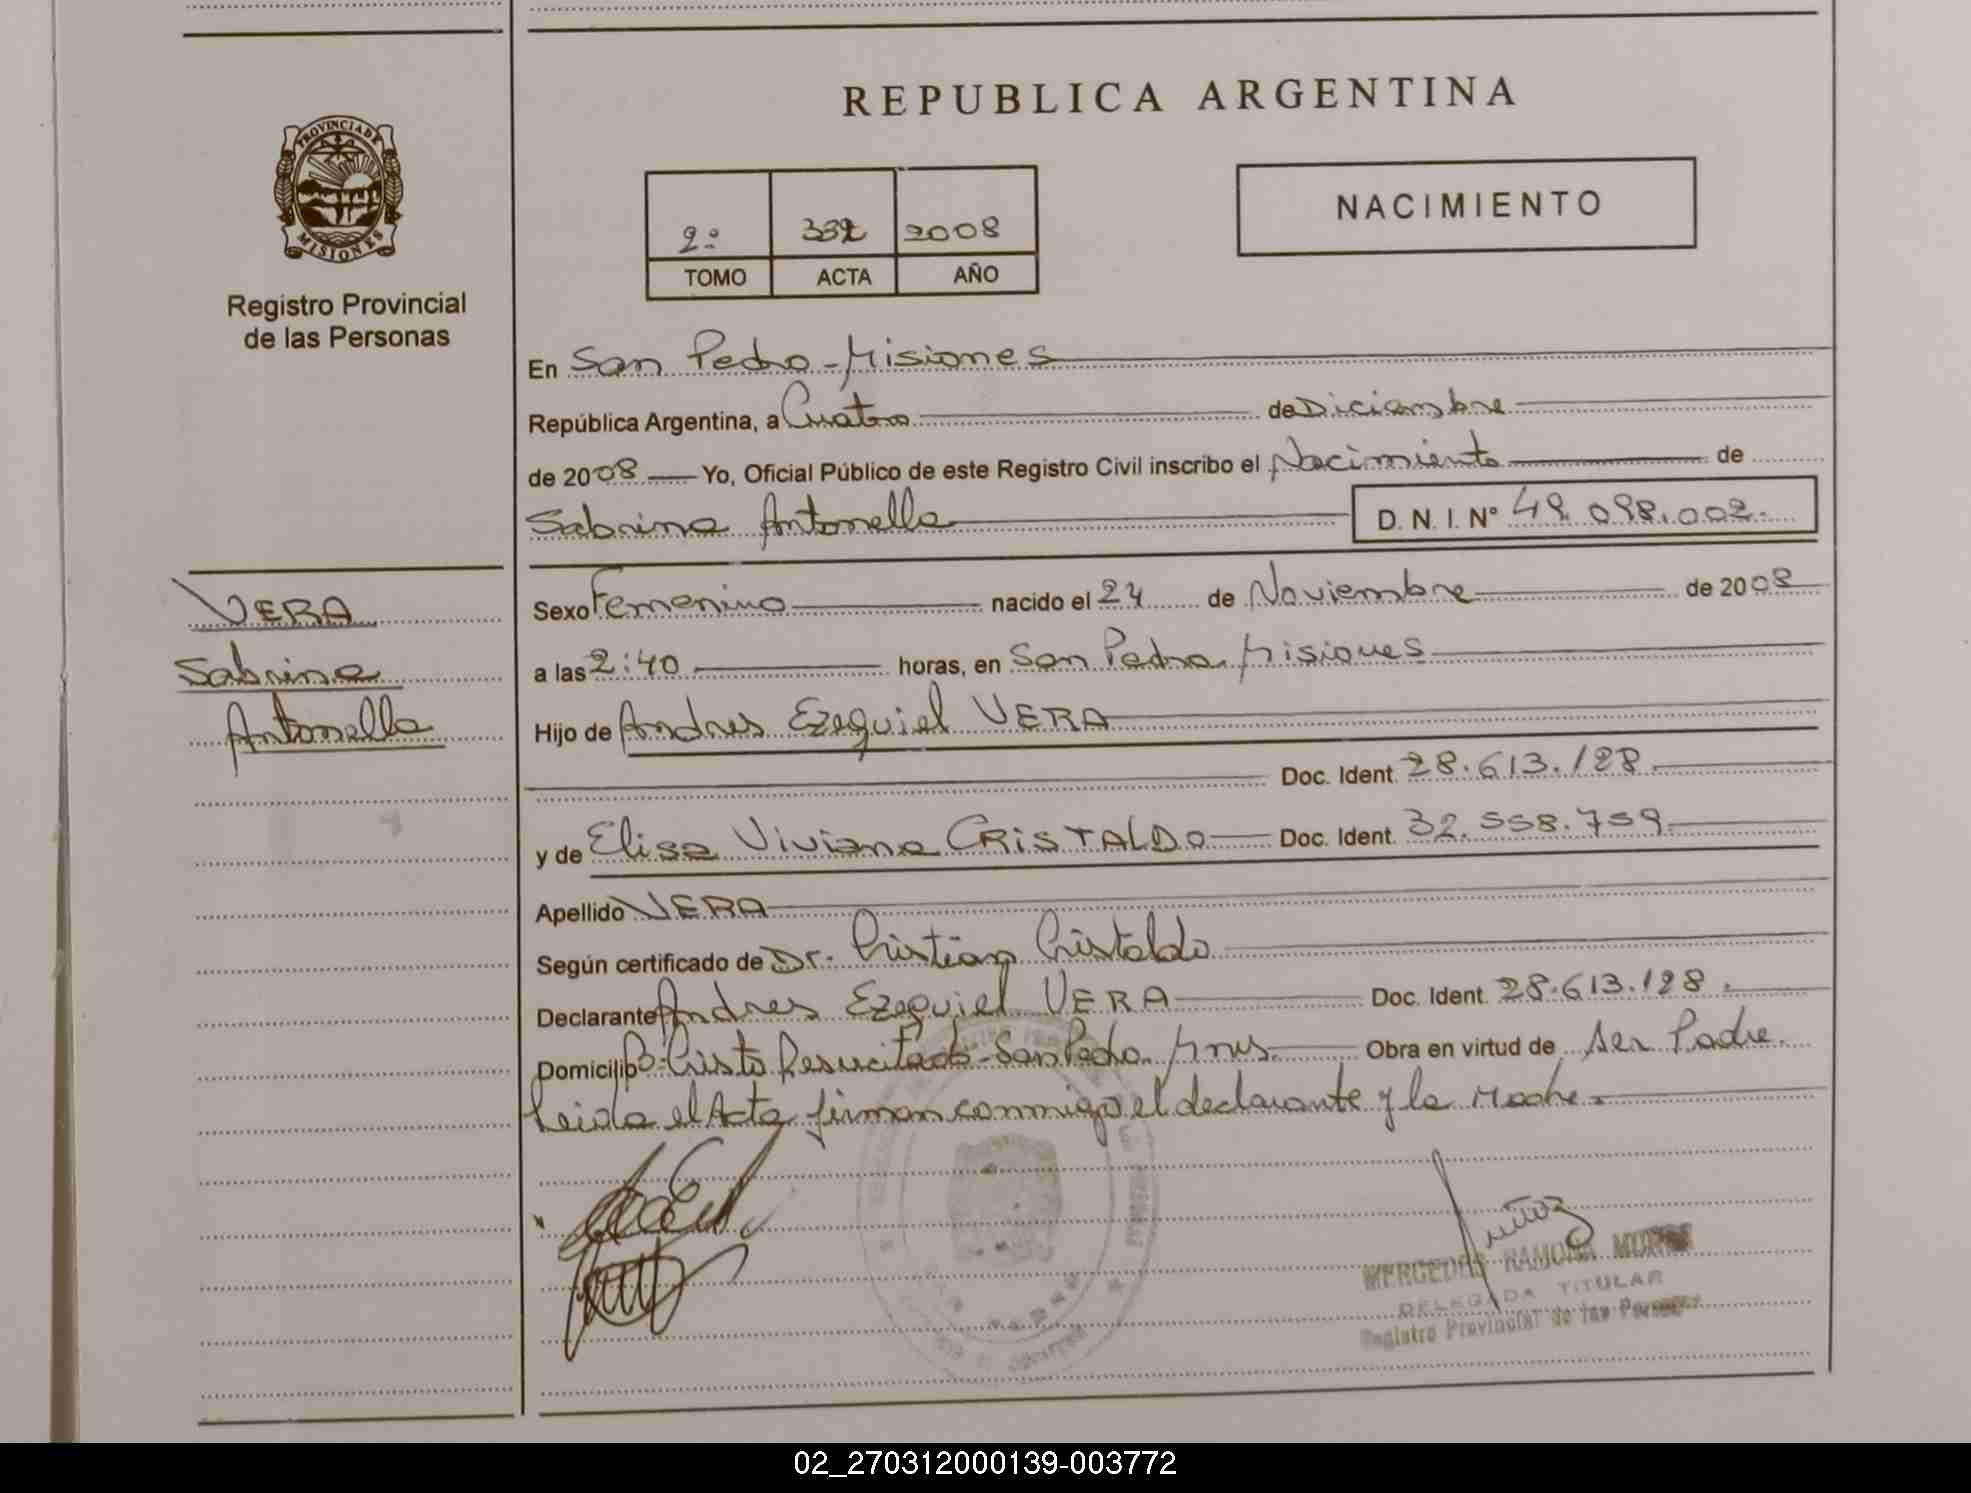 REPUBLICA ARGENTINA
PROVINCIA DE
MISIONES
Registro Provincial
de las Personas
2º 332 2008
TOMO ACTA AÑO
NACIMIENTO
En San Pedro - Misiones
República Argentina, a Cuatro de Diciembre
de 2008 Yo, Oficial Público de este Registro Civil inscribo el Nacimiento de
Sabrina Antonella D. N. I. Nº 49.098.002.
VERA
Sabrina
Antonella
Sexo Femenino nacido el 24 de Noviembre de 2008
a las 2:40 horas, en San Pedro Misiones
Hijo de Andres Ezequiel VERA
Doc. Ident. 28.613.128.
y de Elisa Viviana CRISTALDO Doc. Ident. 32.558.759
Apellido VERA
Según certificado de Dr. Cristian Cristaldo
Declarante Andres Ezequiel VERA Doc. Ident. 28.613.128.
Domicilio Bº Cristo Resucitado - San Pedro Mnes. Obra en virtud de ser Padre.
Leida el Acta firman conmigo el declarante y la Madre.
Muñoz
MERCEDES RAMONA
DELEGADA TITULAR
Registro Provincial de las
02_270312000139-003772